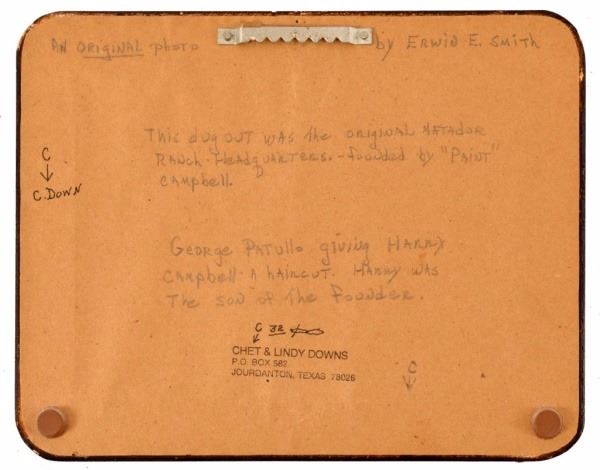 AN ORIGINAL photo by ERWIN E. SMITH
This dug out was the original MATADOR
RANCH HEADQUARTERS. - founded by "PAINT"
CAMPbell.
C
C. DOWN
GEORGE PATULLO giving HARRY
CAMPbell A haircut. HARRY WAS
The SON of The Founder.
C 32
CHET & LINDY DOWNS
P.O. BOX 582
JOURDANTON, TEXAS 78026
C